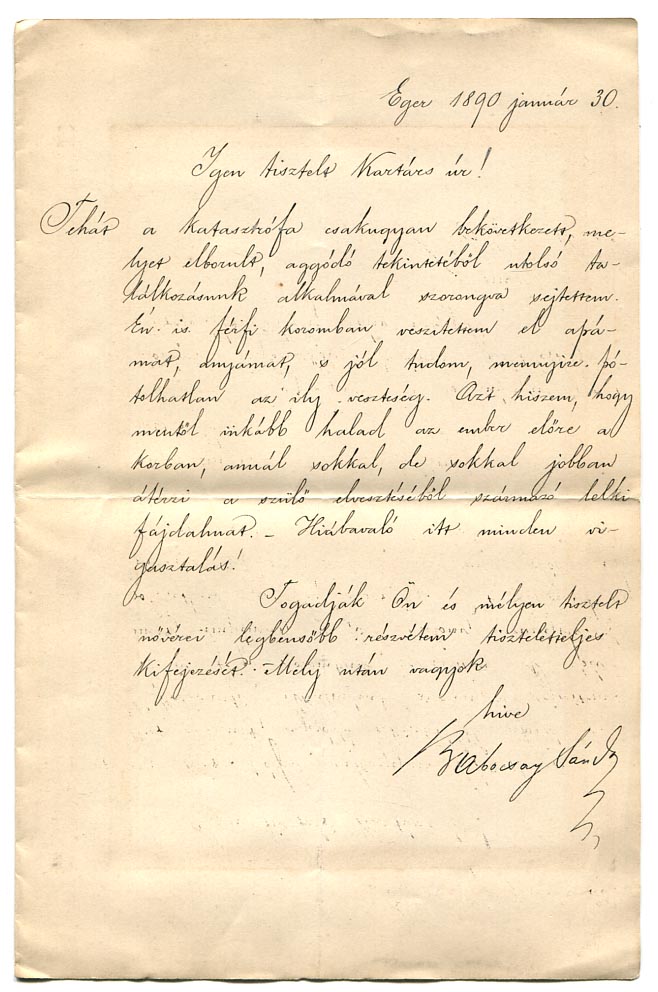 Eger 1890 január 30.
Igen tisztelt Kartárs úr!
Tehát a katasztrófa csakugyan bekövetkezett, me-
lyet elborult, aggódó tekintetéből utolsó ta-
lálkozásunk alkalmával szorongva sejtettem.
Én is férfi koromban veszitettem el apá-
mat, anyámat, s jól tudom, mennyire pó-
tolhatlan az ily veszteség. Azt hiszem, hogy
mentől inkább halad az ember előre a
korban, annál sokkal, de sokkal jobban
átérzi a szülő elvesztéséből származó lelki
fájdalmat. – Hiábavaló itt minden vi-
gasztalás!
Fogadják Ön és mélyen tisztelt
nővérei legbensőbb részvétem tiszteletteljes
kifejezését. Mely után vagyok
hive
Babocsay Sándor